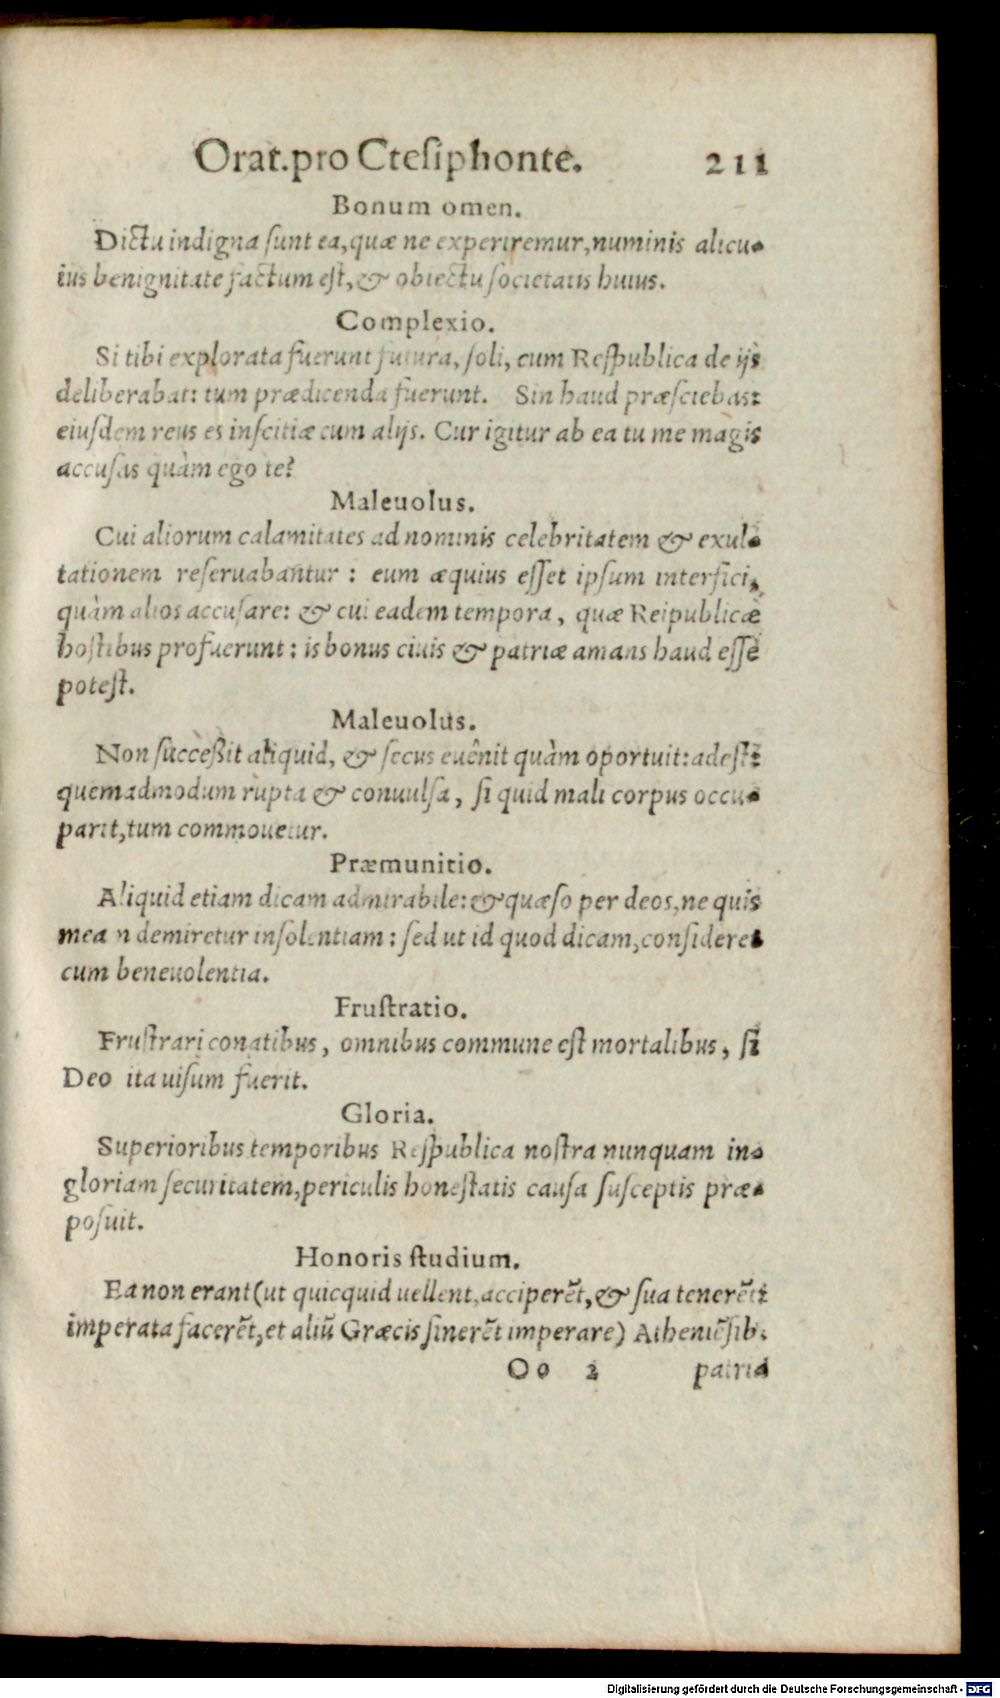 Orat.pro Ctesiphonte. 211
Bonum omen.
Dictu indigna sunt ea,quæ ne experiremur,numinis alicu-
ius benignitate factum est, & obiectu societatis huius.
Complexio.
Si tibi explorata fuerunt futura, soli, cum Respublica de ijs
deliberabat: tum prædicenda fuerunt. Sin haud præsciebas:
eiusdem reus es inscitiæ cum alijs. Cur igitur ab ea tu me magis
accusas quàm ego te?
Maleuolus.
Cui aliorum calamitates ad nominis celebritatem & exul-
tationem reseruabantur : eum æquius esset ipsum interfici,
quàm alios accusare: & cui eadem tempora, quæ Reipublicæ
hostibus profuerunt : is bonus ciuis & patriæ amans haud esse
potest.
Maleuolus.
Non successit aliquid, & secus euênit quàm oportuit: adest:
quemadmodum rupta & conuulsa, si quid mali corpus occu-
parit,tum commouetur.
Præmunitio.
Aliquid etiam dicam admirabile: & quæso per deos,ne quis
mea n demiretur insolentiam : sed ut id quod dicam,consideret
cum beneuolentia.
Frustratio.
Frustrari conatibus, omnibus commune est mortalibus, si
Deo ita uisum fuerit.
Gloria.
Superioribus temporibus Respublica nostra nunquam in-
gloriam securitatem,periculis honestatis causa susceptis præ-
posuit.
Honoris studium.
Ea non erant (ut quicquid uellent,acciperẽt, & sua tenerẽt:
imperata facerẽt,et aliũ Græcis sinerẽt imperare) Atheniẽsib.
Oo 2 patria